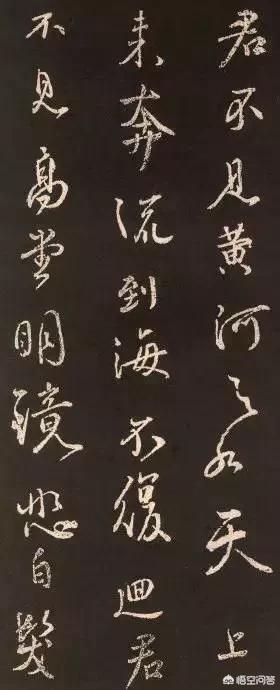 君不見黃河之水天上
來奔流到海不復迴君
不見高堂明鏡悲白髮
悟空问答